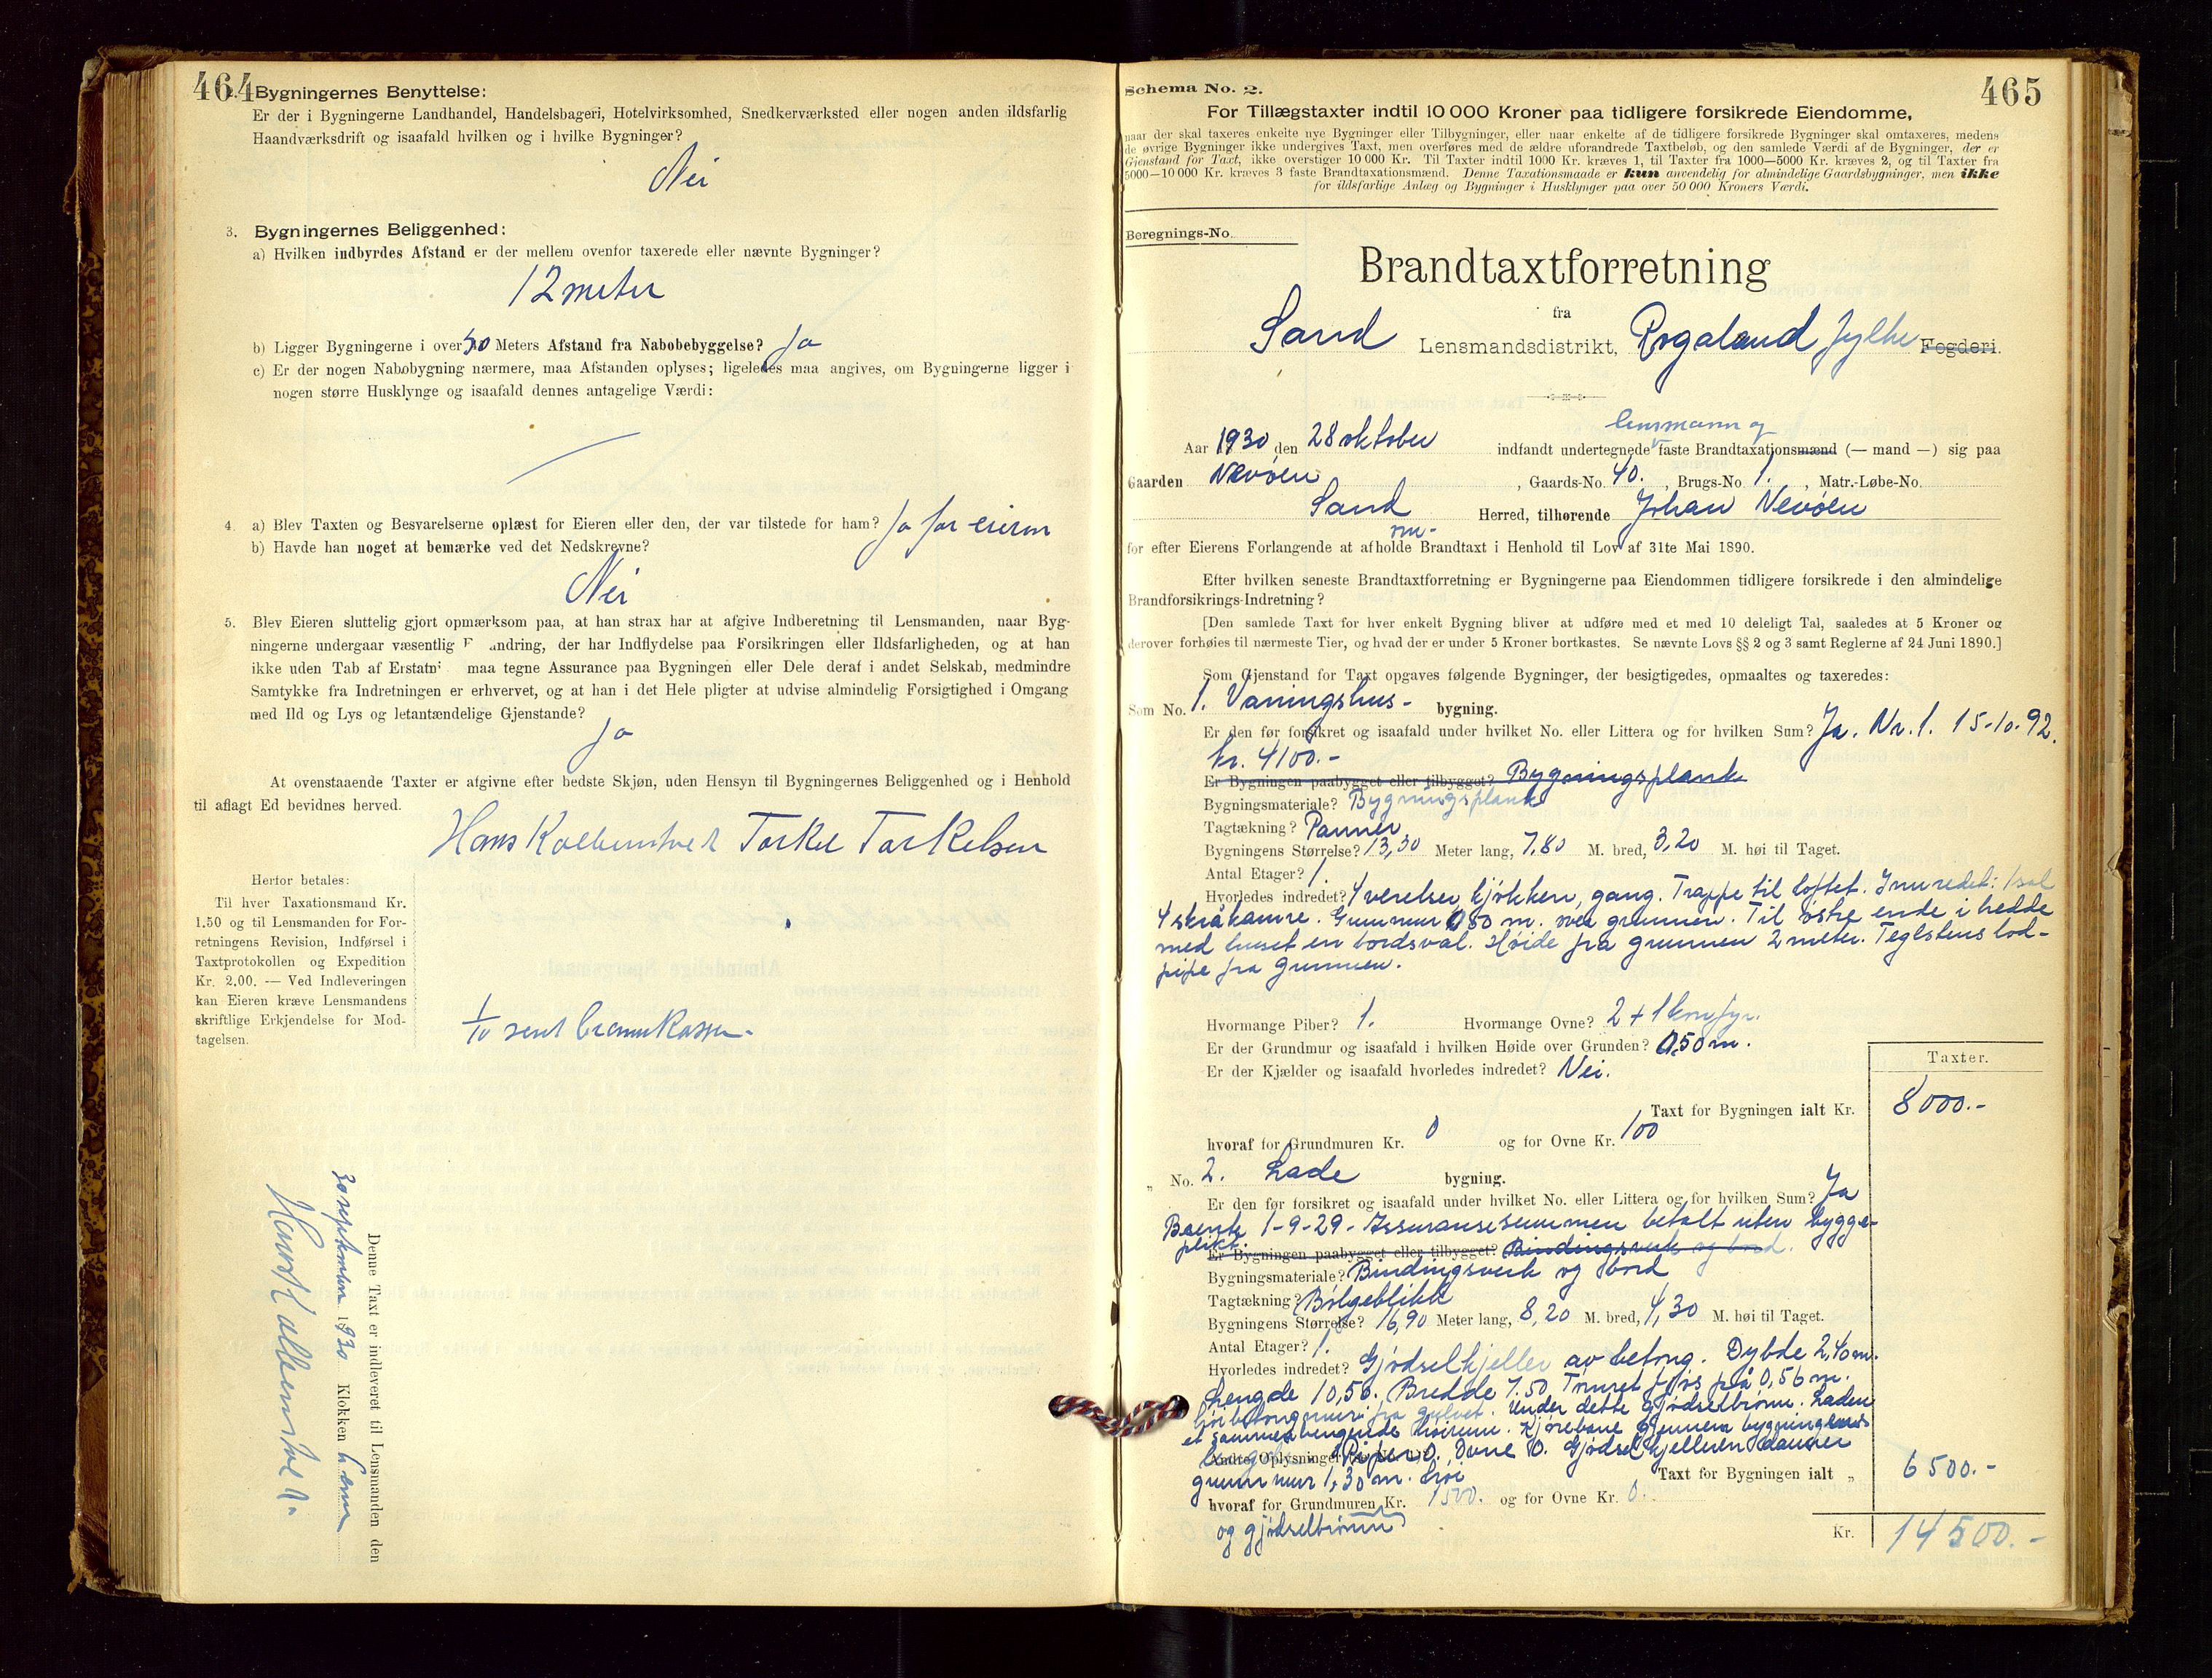 464
2. Bygningernes Benyttelse:
Er der i Bygningerne Landhandel, Handelsbageri, Hotelvirksomhed, Snedkerværksted eller nogen anden ildsfarlig
Haandværksdrift og isaafald hvilken og i hvilke Bygninger?
Nei
3. Bygningernes Beliggenhed:
a) Hvilken indbyrdes Afstand er der mellem ovenfor taxerede eller nævnte Bygninger?
12 meter
b) Ligger Bygningerne i over 50 Meters Afstand fra Nabobebyggelse? Ja
c) Er der nogen Nabobygning nærmere, maa Afstanden oplyses; ligeledes maa angives, om Bygningerne ligger i
nogen større Husklynge og isaafald dennes antagelige Værdi:
4. a) Blev Taxten og Besvarelserne oplæst for Eieren eller den, der var tilstede for ham? Ja for eieren
b) Havde han noget at bemærke ved det Nedskrevne?
Nei
5. Blev Eieren sluttelig gjort opmærksom paa, at han strax har at afgive Indberetning til Lensmanden, naar Byg-
ningerne undergaar væsentlig F andring, der har Indflydelse paa Forsikringen eller Ildsfarligheden, og at han
ikke uden Tab af Erstatn maa tegne Assurance paa Bygningen eller Dele deraf i andet Selskab, medmindre
Samtykke fra Indretningen er erhvervet, og at han i det Hele pligter at udvise almindelig Forsigtighed i Omgang
med Ild og Lys og letantændelige Gjenstande?
Ja
At ovenstaaende Taxter er afgivne efter bedste Skjøn, uden Hensyn til Bygningernes Beliggenhed og i Henhold
til aflagt Ed bevidnes herved.
Hans Kolbenstvedt Torkel Torkelsen
Herfor betales:
Til hver Taxationsmand Kr.
1.50 og til Lensmanden for For-
retningens Revision, Indførsel i
Taxtprotokollen og Expedition
Kr. 2.00. — Ved Indleveringen
kan Eieren kræve Lensmandens
skriftlige Erkjendelse for Mod-
tagelsen.
1/10 sent brannkassen.
Denne Taxt er indleveret til Lensmanden den
30 september 1930 Klokken
Hans Kolbenstvedt
465
Schema No. 2.
For Tillægstaxter indtil 10 000 Kroner paa tidligere forsikrede Eiendomme,
naar der skal taxeres enkelte nye Bygninger eller Tilbygninger, eller naar enkelte af de tidligere forsikrede Bygninger skal omtaxeres, medens
de øvrige Bygninger ikke undergives Taxt, men overføres med de ældre uforandrede Taxtbeløb, og den samlede Værdi af de Bygninger, der er
Gjenstand for Taxt, ikke overstiger 10 000 Kr. Til Taxter indtil 1000 Kr. kræves 1, til Taxter fra 1000—5000 Kr. kræves 2, og til Taxter fra
5000—10 000 Kr. kræves 3 faste Brandtaxationsmænd. Denne Taxationsmaade er kun anvendelig for almindelige Gaardsbygninger, men ikke
for ildsfarlige Anlæg og Bygninger i Husklynger paa over 50 000 Kroners Værdi.
Beregnings-No.
Brandtaxtforretning
fra
Sand Lensmandsdistrikt, Rogaland fylke Fogderi.
lensmann og
Aar 1930 den 28 oktober indfandt undertegnede faste Brandtaxationsmænd (— mand —) sig paa
Gaarden Nevøen , Gaards-No. 40. , Brugs-No. 1. , Matr.-Løbe-No.
Sand Herred, tilhørende Johan Nevøen
for efter Eierens Forlangende at afholde Brandtaxt i Henhold til Lov af 31te Mai 1890.
Efter hvilken seneste Brandtaxtforretning er Bygningerne paa Eiendommen tidligere forsikrede i den almindelige
Brandforsikrings-Indretning?
[Den samlede Taxt for hver enkelt Bygning bliver at udføre med et med 10 deleligt Tal, saaledes at 5 Kroner og
derover forhøies til nærmeste Tier, og hvad der er under 5 Kroner bortkastes. Se nævnte Lovs §§ 2 og 3 samt Reglerne af 24 Juni 1890.]
Som Gjenstand for Taxt opgaves følgende Bygninger, der besigtigedes, opmaaltes og taxeredes:
Som No. 1. Vaningshus- bygning.
Er den før forsikret og isaafald under hvilket No. eller Littera og for hvilken Sum? Ja. Nr. 1. 15-10-92.
kr. 4100.-
Er Bygningen paabygget eller tilbygget? Bygningsplank
Bygningsmateriale? Bygningsplank
Tagtækning? Panner
Bygningens Størrelse? 13,30 Meter lang, 7,80 M. bred, 3,20 M. høi til Taget.
Antal Etager? 1.
Hvorledes indredet? 4 værelser, kjøkken, gang. Trappe til loftet. Innredet: 1 sal
4 skråkamre. Grunnmur 0,50 m. over grunnen. Til østre ende i bredde
med huset en bordsval. Høide fra grunnen 2 meter. Teglstens lod-
pipe fra grunnen.
Hvormange Piber? 1. Hvormange Ovne? 2 + 1 komfyr.
Er der Grundmur og isaafald i hvilken Høide over Grunden? 0,50 m.
Er der Kjælder og isaafald hvorledes indredet? Nei.
Taxter.
Taxt for Bygningen ialt Kr. 8000.-
hvoraf for Grundmuren Kr. 0 og for Ovne Kr. 100
„ No. 2. Lade bygning.
Er den før forsikret og isaafald under hvilket No. eller Littera og for hvilken Sum? Ja
Brente 1-9-29. Assuransesummen betalt uten bygge-
plikt.
Er Bygningen paabygget eller tilbygget? Bindingsverk og bord.
Bygningsmateriale? Bindingsverk og bord
Tagtækning? Bølgeblikk
Bygningens Størrelse? 16,90 Meter lang, 8,20 M. bred, 4,30 M. høi til Taget.
Antal Etager? 1.
Hvorledes indredet? Gjødselkjeller av betong. Dybde 2,40 m.
Lengde 10,50. Bredde 7.50 på 0,56 m.
fra gulvet. Under dette gjødselbrønn. Laden
et sammenhengende høirum. Kjørebane gjennem bygningens
lengde.
Andre Oplysninger: Piper 0. Ovne 0. Gjødselkjelleren danner
grunnmur 1,30 m. høi
Taxt for Bygningen ialt „ 6500.-
hvoraf for Grundmuren Kr. 1500. og for Ovne Kr. 0.
og gjødselbrønn
Kr. 14500.-